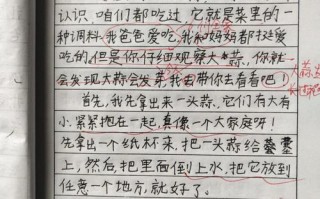 认识,咱们都吃过,它就是菜里的一
种调料。我爸爸爱吃,我和妈妈都挺爱
吃的,但是你仔细观察大蒜,你就
会发现大蒜会发芽,我会带你去看看吧!
首先,我先拿出来一头蒜,它们有大有
小,紧紧抱在一起,真像一个大家庭呀!
先拿出一个纸杯来,把一头蒜给
上,然后,把里面倒上水,把它放到
任意一个地方,就好了。
大蒜